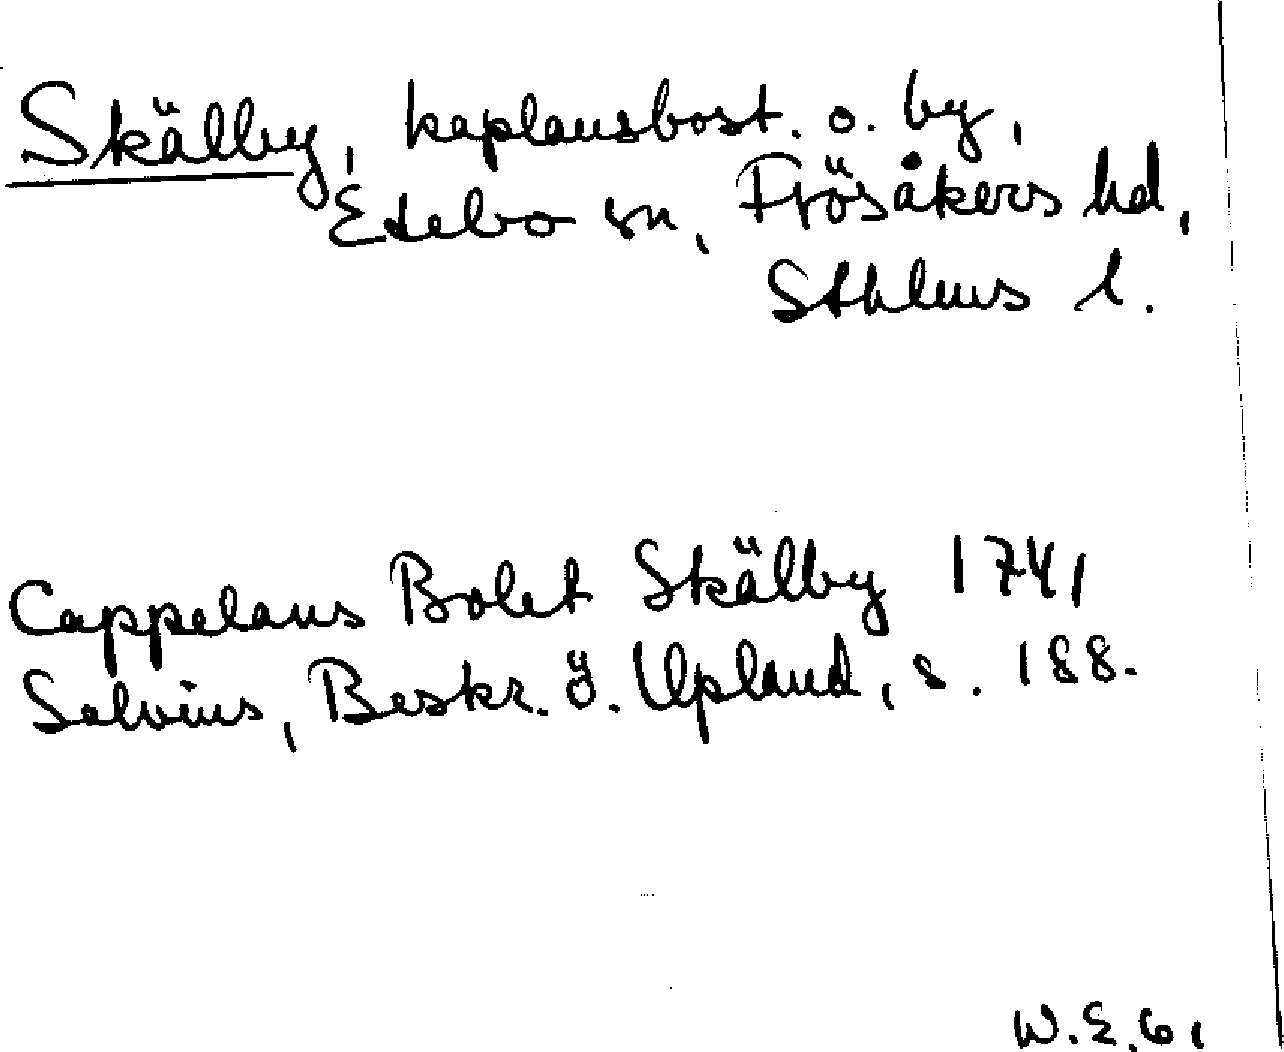 Skälby, kaplansbost. o. by,
Edebo sn, Frösåkers hd,
Sthlms l.
Cappelans Bolet Skälby 1741
Salvius, Beskr. ö. Upland, s. 188.
W.E.61